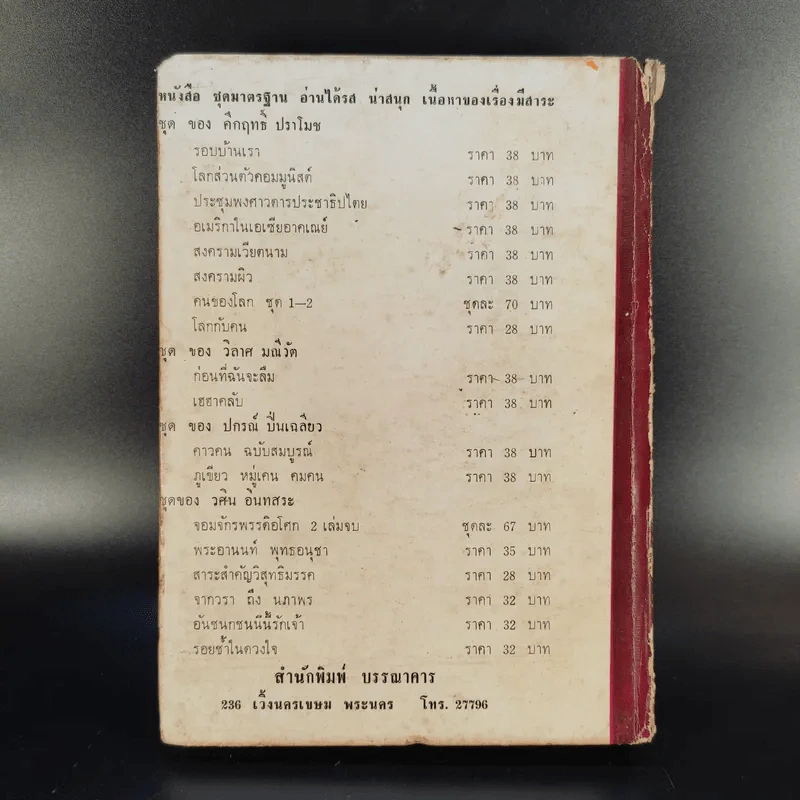 หนังสือ ชุดมาตรฐาน อ่านได้รส น่าสนุก เนื้อหาของเรื่องมีสาระ
ชุด ของ คึกฤทธิ์ ปราโมช
รอบบ้านเรา ราคา 38 บาท
โลกส่วนตัวคอมมูนิสต์ ราคา 38 บาท
ประชุมพงศาวดารประชาธิปไตย ราคา 38 บาท
อเมริกาในเอเซียอาคเณย์ ราคา 38 บาท
สงครามเวียตนาม ราคา 38 บาท
สงครามผิว ราคา 38 บาท
คนของโลก ชุด 1—2 ชุดละ 70 บาท
โลกกับคน ราคา 28 บาท
ชุด ของ วิลาศ มณีวัต
ก่อนที่ฉันจะลืม ราคา 38 บาท
เฮฮาคลับ ราคา 38 บาท
ชุด ของ ปกรณ์ ปิ่นเฉลียว
คาวคน ฉบับสมบูรณ์ ราคา 38 บาท
ภูเขียว หมู่เคน คมคน ราคา 38 บาท
ชุดของ วศิน อินทสระ
จอมจักรพรรดิอโศก 2 เล่มจบ ชุดละ 67 บาท
พระอานนท์ พุทธอนุชา ราคา 35 บาท
สาระสำคัญวิสุทธิมรรค ราคา 28 บาท
จากวรา ถึง นภาพร ราคา 32 บาท
อันชนกชนนีนี้รักเจ้า ราคา 32 บาท
รอยช้ำในดวงใจ ราคา 32 บาท
สำนักพิมพ์ บรรณาคาร
236 เวิ้งนครเขษม พระนคร โทร. 27796